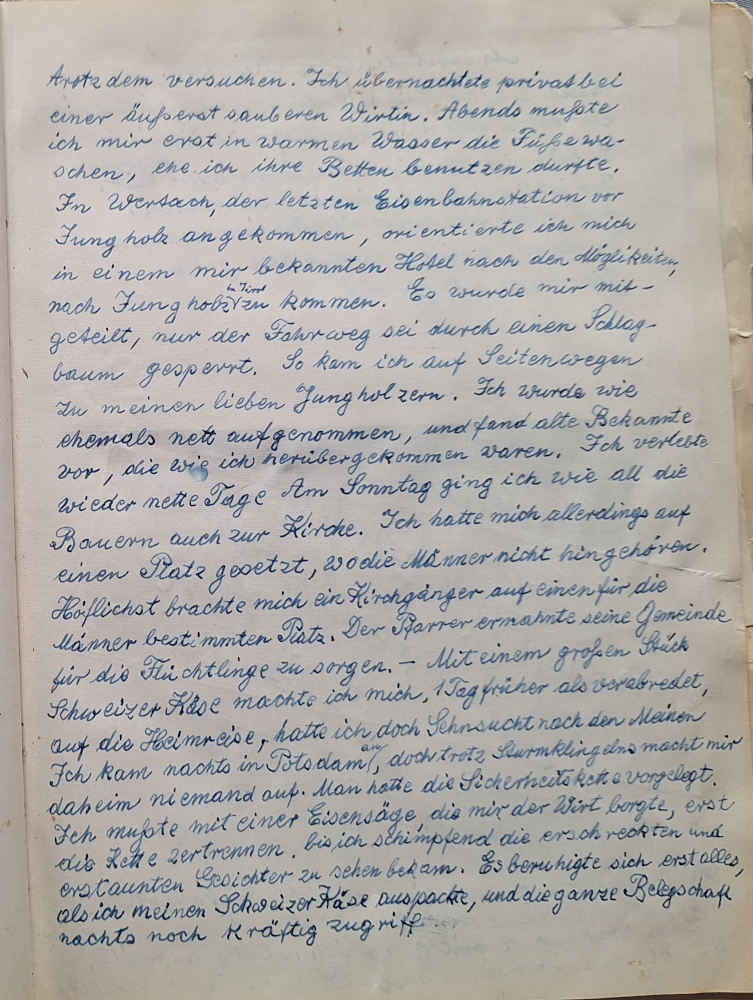 trotzdem versuchen. Ich übernachtete privat bei
einer äußerst sauberen Wirtin. Abends mußte
ich mir erst in warmen Wasser die Füße wa-
schen, ehe ich ihre Betten benutzen durfte.
In Wertach, der letzten Eisenbahnstation vor
Jungholz angekommen, orientierte ich mich
in einem mir bekannten Hotel nach den Möglikeiten,
nach Jungholz in Tirol zu kommen. Es wurde mir mit-
geteilt, nur der Fahrweg sei durch einen Schlag-
baum gesperrt. So kam ich auf Seitenwegen
zu meinen lieben Jungholzern. Ich wurde wie
ehemals nett aufgenommen, und fand alte Bekannte
vor, die wie ich herübergekommen waren. Ich verlebte
wieder nette Tage Am Sonntag ging ich wie all die
Bauern auch zur Kirche. Ich hatte mich allerdings auf
einen Platz gesetzt, wo die Männer nicht hingehören.
Höflichst brachte mich ein Kirchgänger auf einen für die
Männer bestimmten Platz. Der Pfarrer ermahnte seine Gemeinde
für die Flüchtlinge zu sorgen. – Mit einem großen Stück
Schweizer Käse machte ich mich, 1 Tag früher als verabredet,
auf die Heimreise, hatte ich doch Sehnsucht nach den Meinen
Ich kam nachts in Potsdam an, doch trotz Sturmklingelns macht mir
daheim niemand auf. Man hatte die Sicherheitskette vorgelegt.
Ich mußte mit einer Eisensäge, die mir der Wirt borgte, erst
die Kette zertrennen. bis ich schimpfend die erschreckten und
erstaunten Gesichter zu sehen bekam. Es beruhigte sich erst alles,
als ich meinen Schweizer Käse auspackte, und die ganze Belegschaft
nachts noch kräftig zugriff.